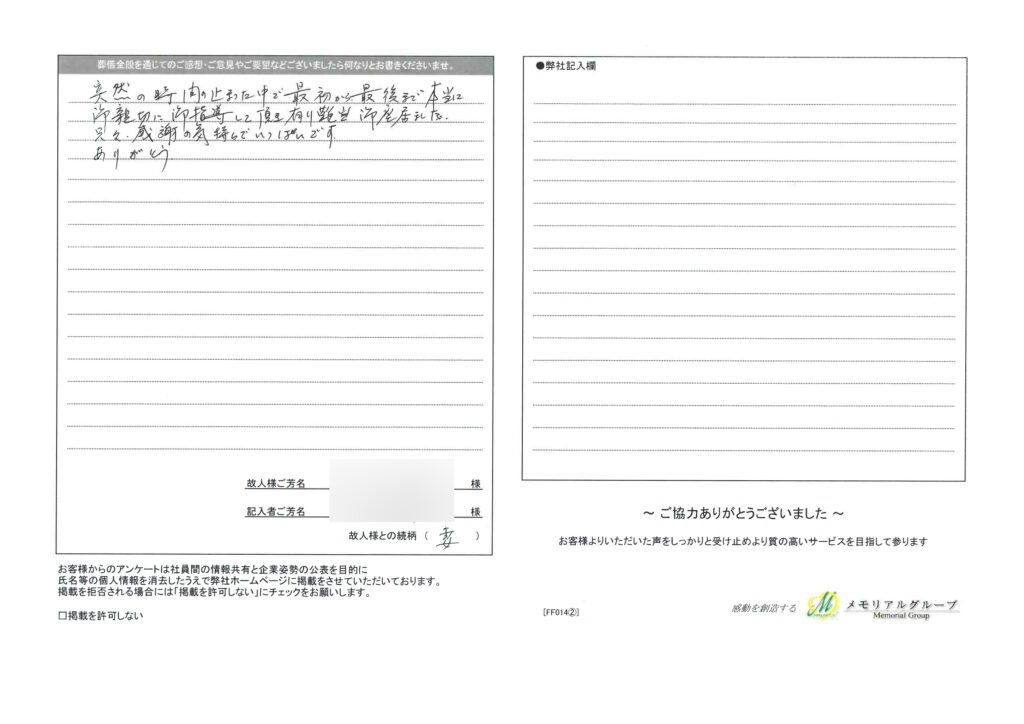 葬儀全般を通じてのご感想・ご意見やご要望などございましたら何なりとお書きくださいませ。
突然の時間の止まった中で最初から最後まで本当に
御親切に御指導して頂き有り難当御座居ました。
只々、感謝の気持ちでいっぱいです
ありがとう
故人様ご芳名 様
記入者ご芳名 様
故人様との続柄 ( 妻 )
お客様からのアンケートは社員間の情報共有と企業姿勢の公表を目的に
氏名等の個人情報を消去したうえで弊社ホームページに掲載をさせていただいております。
掲載を拒否される場合には「掲載を許可しない」にチェックをお願いします。
□掲載を許可しない
●弊社記入欄
～ ご協力ありがとうございました ～
お客様よりいただいた声をしっかりと受け止めより質の高いサービスを目指して参ります
[FF014②]
感動を創造する
メモリアルグループ
Memorial Group